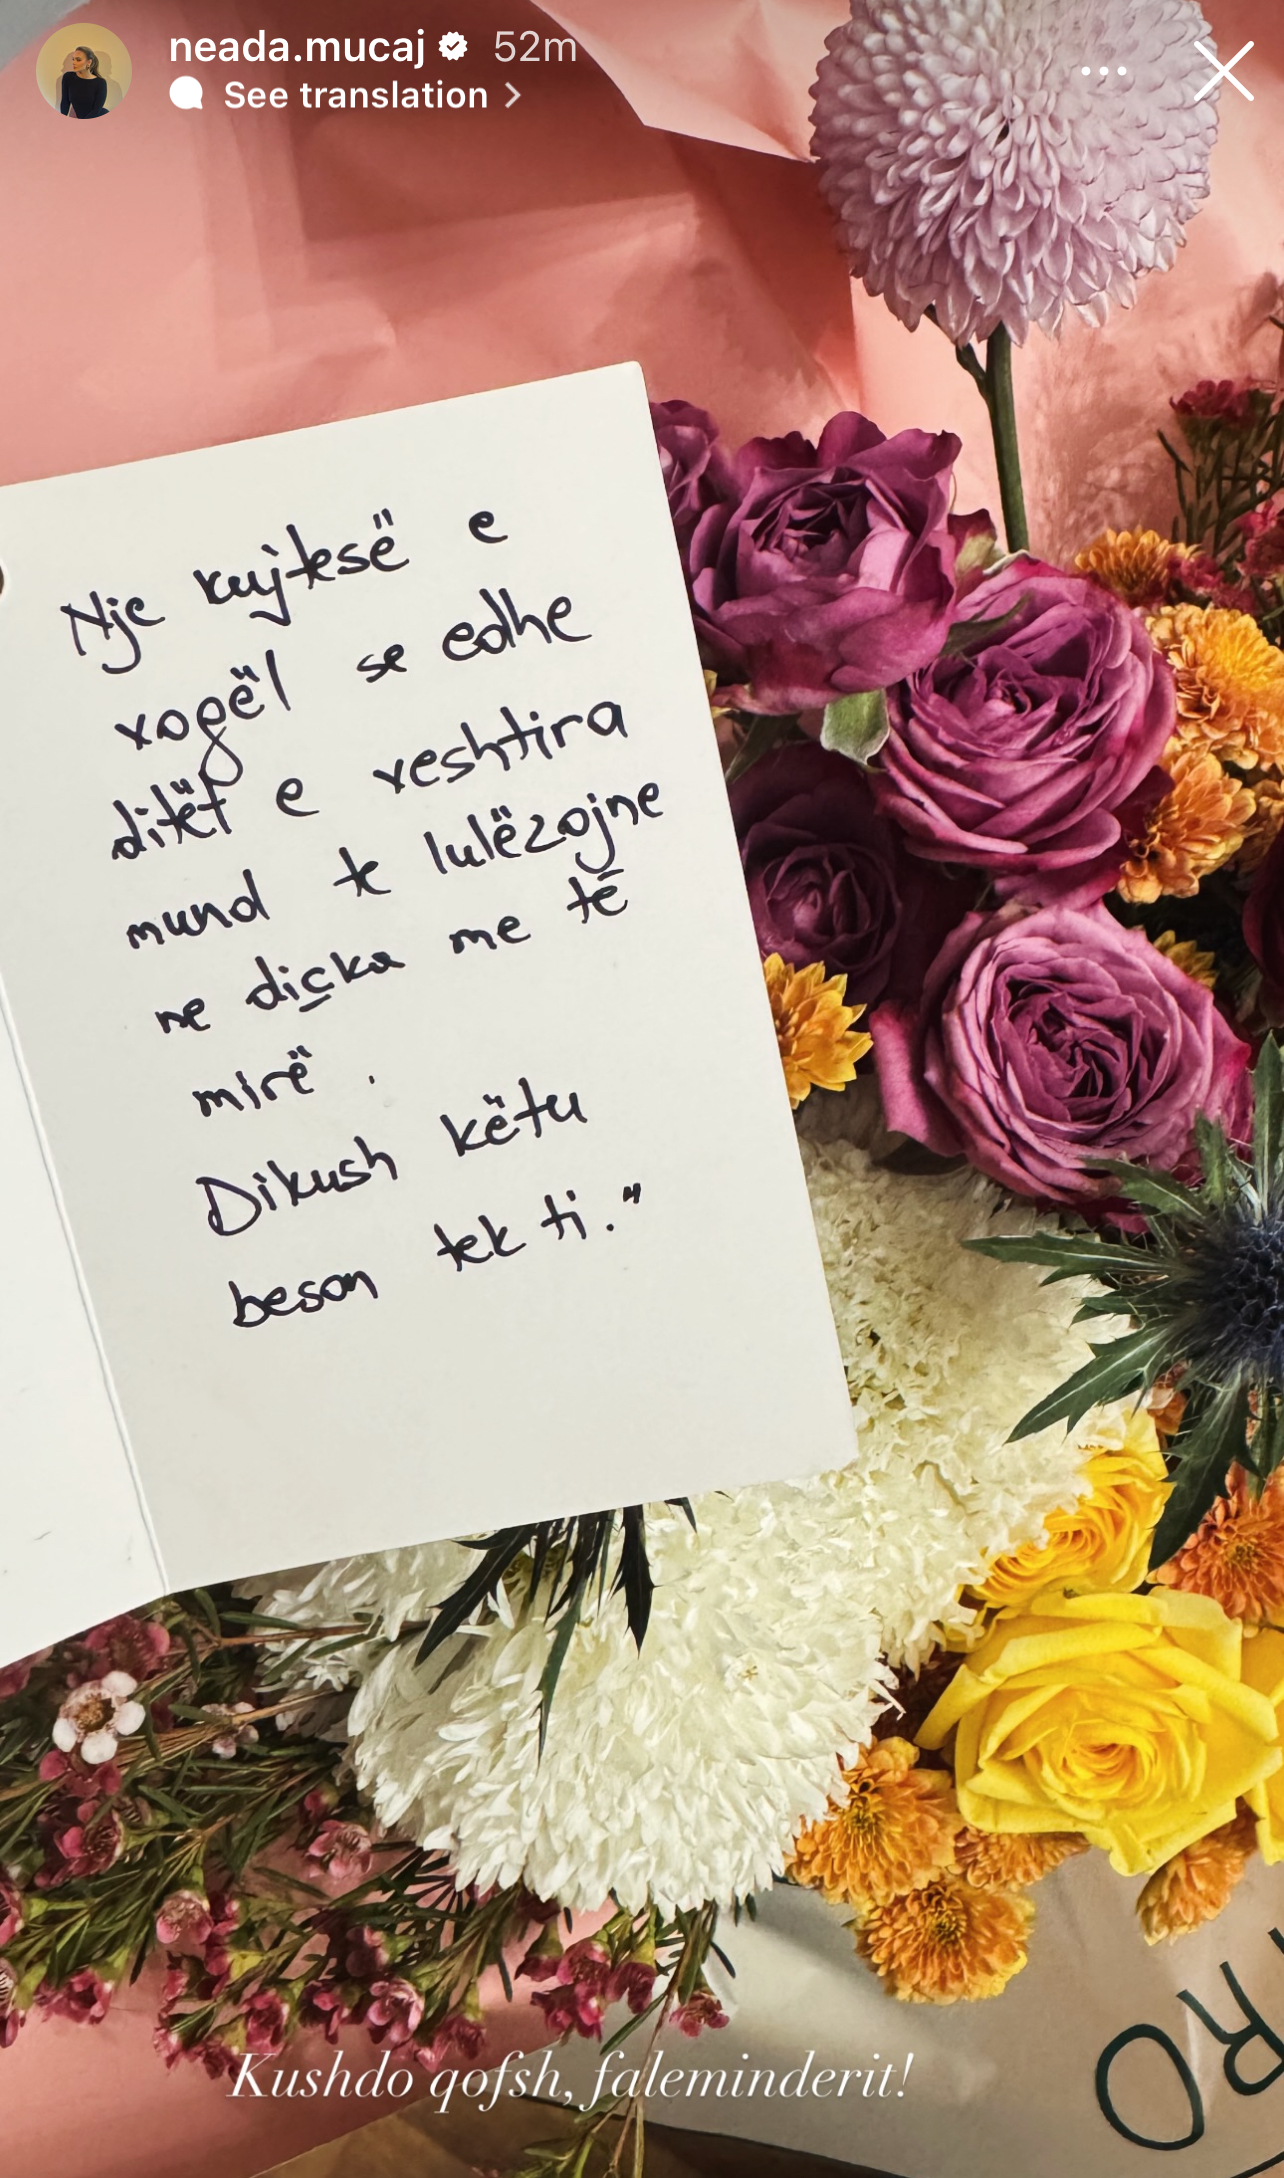 neada.mucaj 52m
See translation >
Nje kujtesë e
vogël se edhe
ditët e veshtira
mund te lulëzojne
ne diçka me të
mirë.
Dikush këtu
beson tek ti."
Kushdo qofsh, faleminderit!
RO